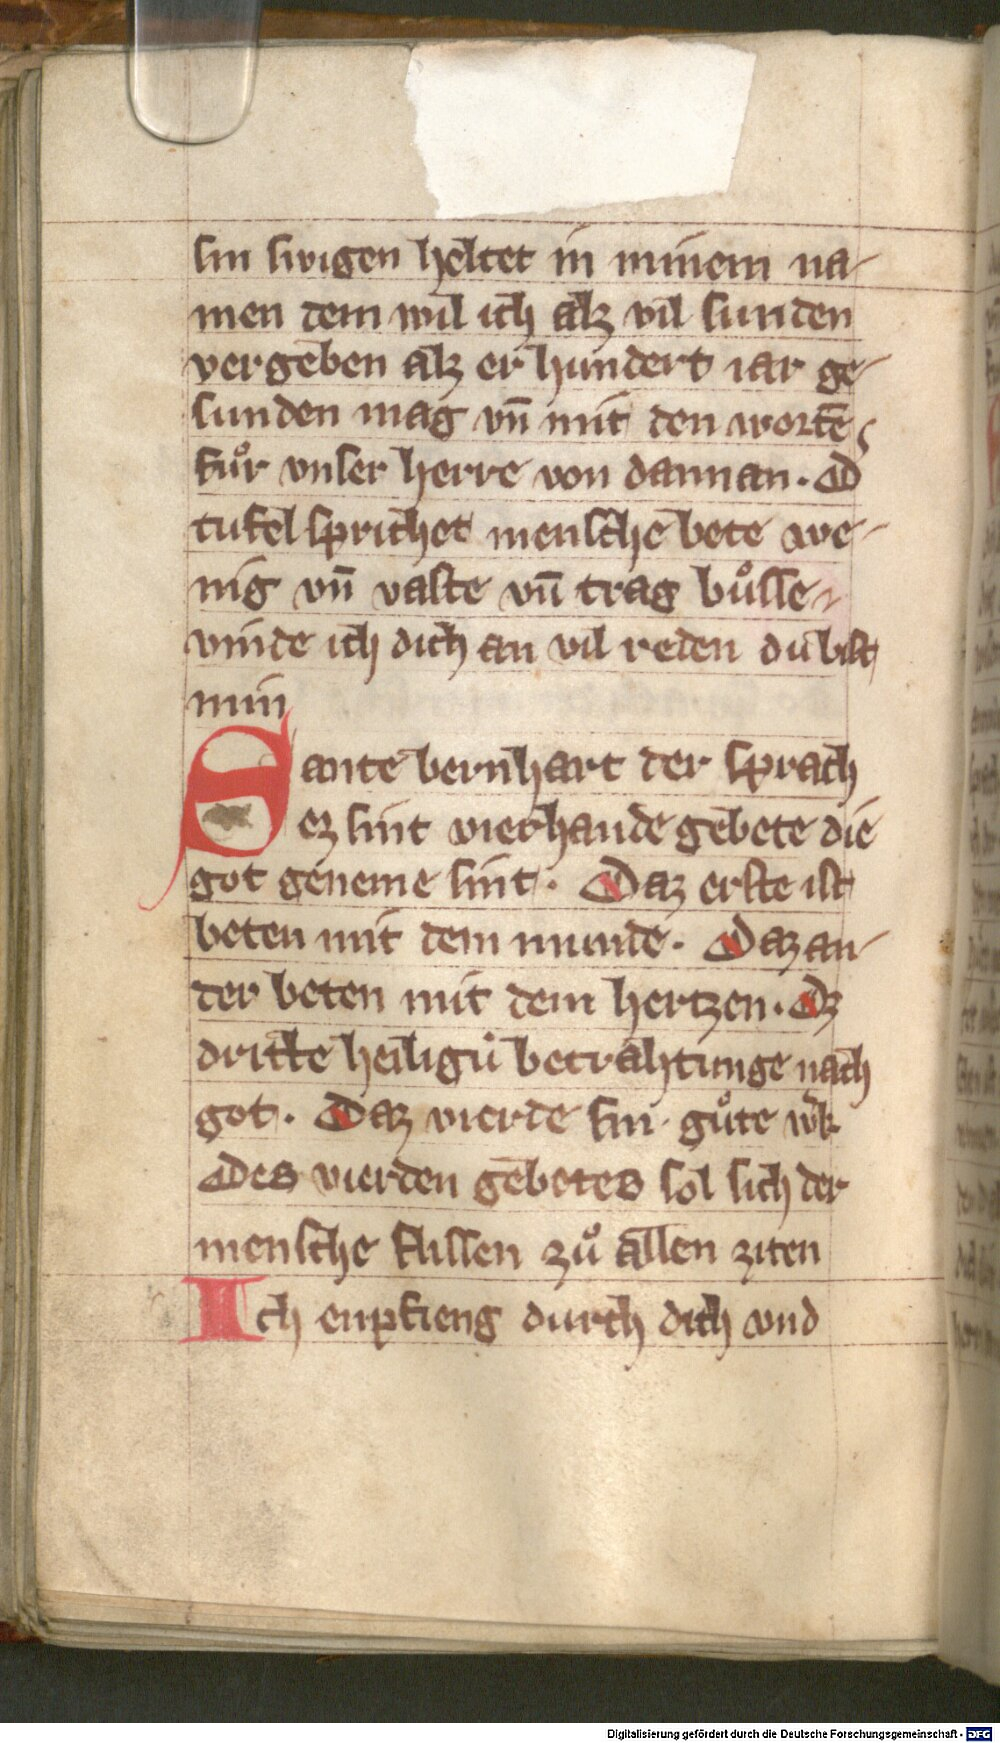 sin swigen heltet in minem na-
men dem wil ich alz vil sunden
vergeben alz er hundert iar ge-
sunden mag vn̄ mit den wortē
fuͦr vnser herre von dannan. D
tufel sprichet mensche bete we-
nig vn̄ vaste vn̄ trag buͦsse
vinde ich dich an vil reden du bist
min
Sante bernhart der sprach
ez sint vierhande gebete die
got geneme sint. Daz erste ist
beten mit dem munde. Daz an-
der beten mit dem hertzen. Dz
dritte heiligú betrahtunge nach
got. Daz vierde sin guͦte w̓k
Des vierden gebetes sol sich der
mensche flissen zuͦ allen ziten
Ich enpfieng durch dich wnd
Digitalisierung gefördert durch die Deutsche Forschungsgemeinschaft - DFG